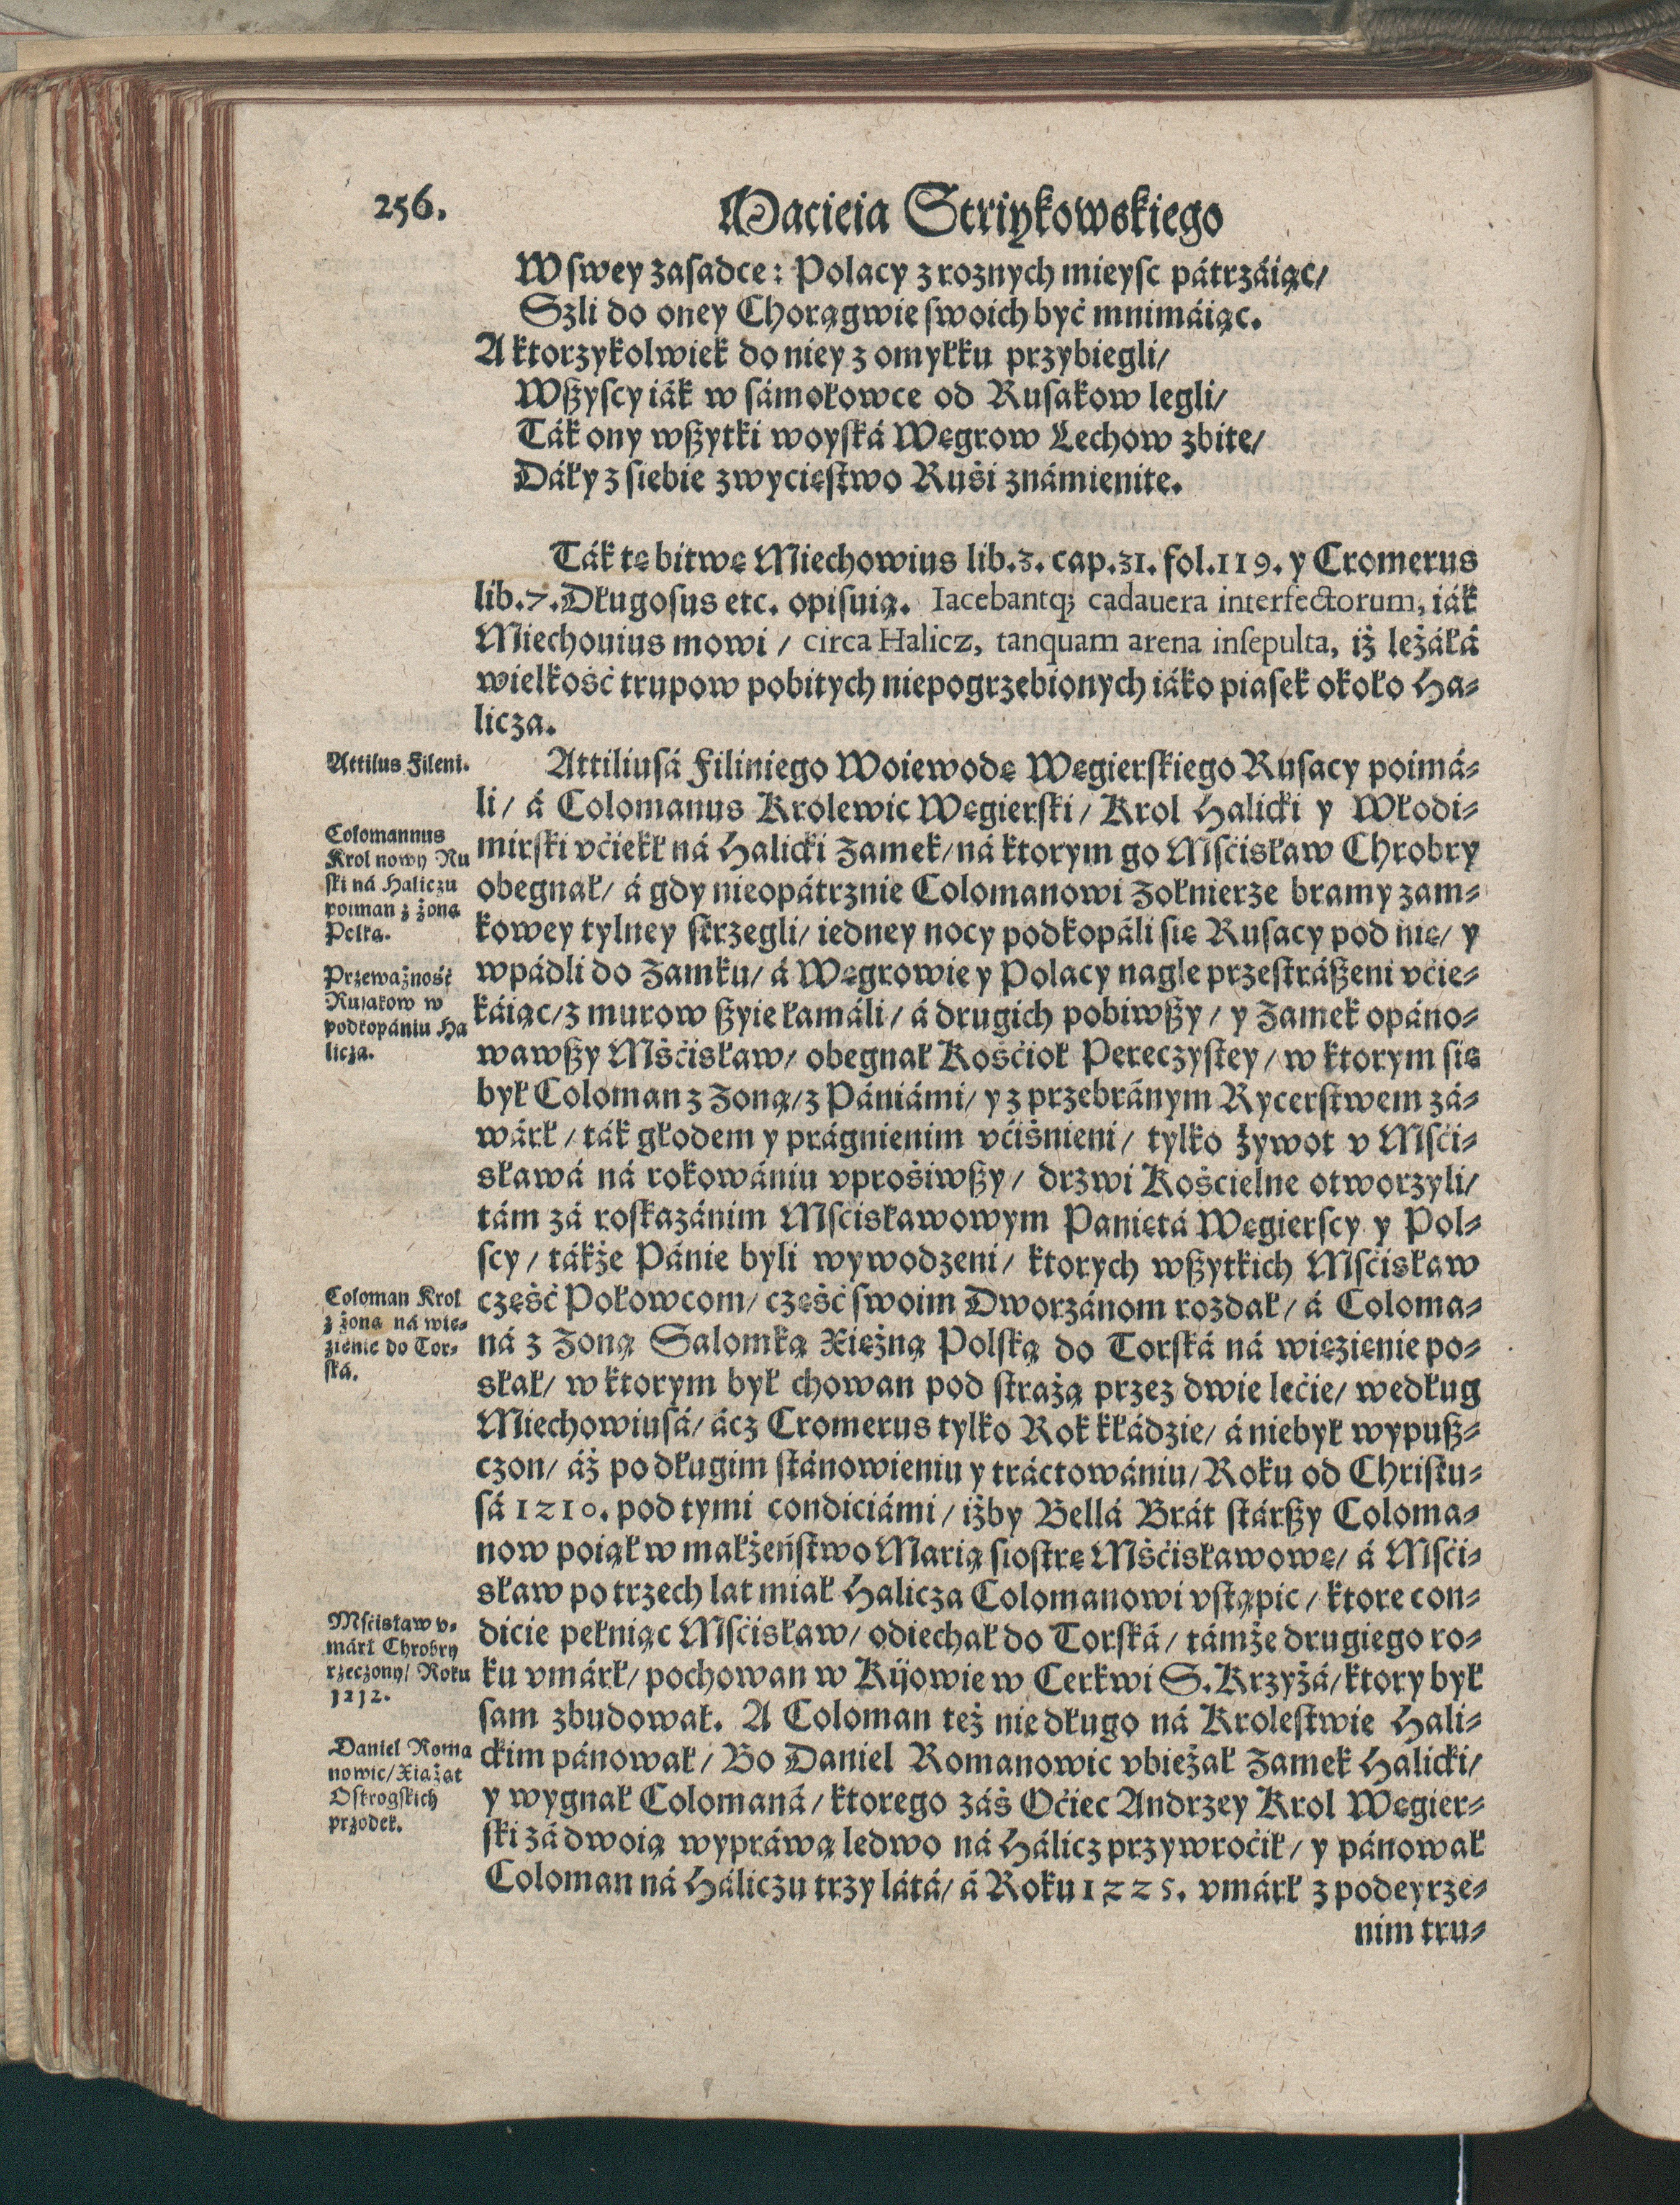 256.
Macieia Striykowskiego
W swey zasadce: Polacy z roznych mieysc pátrzáiąc/
Szli do oney Chorągwie swoich być mnimáiąc.
A ktorzykolwiek do niey z omyłku przybiegli/
Wszyscy iák w sámołowce od Rusakow legli/
Ták ony wszytki woyská Węgrow Lechow zbite/
Dáły z siebie zwycięstwo Ruśi známienite.
Ták tę bitwę Miechowius lib.3. cap.31. fol.119. y Cromerus
lib.7. Długosus etc. opisuią. Iacebantq; cadauera interfectorum, iák
Miechouius mowi / circa Halicz, tanquam arena insepulta, iż leżáłá
wielkość trupow pobitych niepogrzebionych iáko piasek około Ha-
licza.
Attilus Fileni.
Attiliusá Filiniego Woiewodę Węgierskiego Rusacy poimá-
li/ á Colomanus Krolewic Węgierski/ Krol Halicki y Włodi-
mirski vćiekł ná Halicki Zamek/ ná ktorym go Mśćisław Chrobry
obegnał/ á gdy nieopátrznie Colomanowi Zołnierze bramy zam-
kowey tylney strzegli/ iedney nocy podkopáli się Rusacy pod nię/ y
wpádli do Zamku/ á Węgrowie y Polacy nagle przestrászeni vćie-
káiąc/ z murow szyie łamáli/ á drugich pobiwszy/ y Zamek opáno-
wawszy Mśćisław/ obegnał Kośćioł Pereczystey/ w ktorym się
był Coloman z Zoną/ z Pániámi/ y z przebránym Rycerstwem zá-
wárł/ ták głodem y prágnienim vćiśnieni/ tylko żywot v Mśći-
sławá ná rokowániu vprośiwszy/ drzwi Kościelne otworzyli/
tám zá roskazánim Mśćisławowym Paniętá Węgierscy y Pol-
scy/ tákże Pánie byli wywodzeni/ ktorych wszytkich Mśćisław
część Połowcom/ część swoim Dworzánom rozdał/ á Coloma-
ná z Zoną Salomką Xiężną Polską do Torská ná więzienie po-
słał/ w ktorym był chowan pod strażą przez dwie lećie/ według
Miechowiusá/ ácz Cromerus tylko Rok kłádzie/ á niebył wypusz-
czon/ áż po długim stánowieniu y tráctowániu/ Roku od Christu-
sá 1210. pod tymi condiciámi/ iżby Bellá Brát stárszy Coloma-
now poiął w małżeństwo Marią siostrę Mśćisławowę/ á Mśći-
sław po trzech lat miał Halicza Colomanowi vstąpic/ ktore con-
dicie pełniąc Mśćisław/ odiechał do Torská/ támże drugiego ro-
ku vmárł/ pochowan w Kijowie w Cerkwi S. Krzyżá/ ktory był
sam zbudował. A Coloman też nie długo ná Krolestwie Hali-
ckim pánował/ Bo Daniel Romanowic vbieżał Zamek Halicki/
y wygnał Colomaná/ ktorego záś Oćiec Andrzey Krol Węgier-
ski zá dwoią wypráwą ledwo ná Hálicz przywroćił/ y pánował
Coloman ná Háliczu trzy látá/ á Roku 1225. vmárł z podeyrze-
nim tru-
Colomannus
Krol nowy Ru
ski ná Haliczu
poiman z żoną
Polką.
Przeważność
Rusakow w
podkopániu Ha
licza.
Coloman Krol
z żoną ná wię-
zienie do Tor-
ská.
Mśćisław v-
márł Chrobry
rzeczony/ Roku
1212.
Daniel Roma
nowic/ Xiążąt
Ostrogskich
przodek.